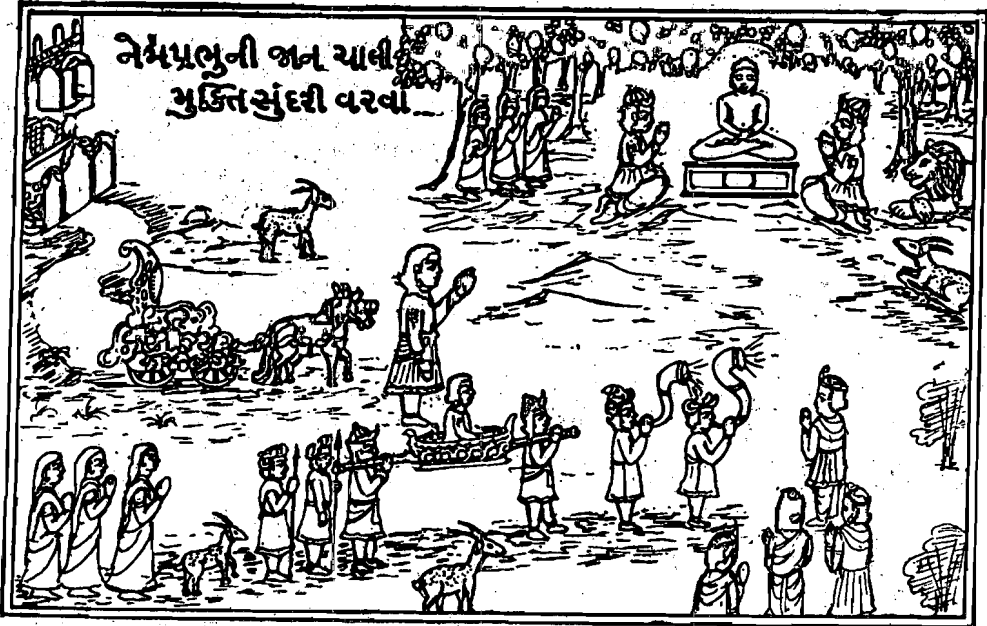 નેમપ્રભુની જાન ચાલી
મુક્તિસુંદરી વરવા...